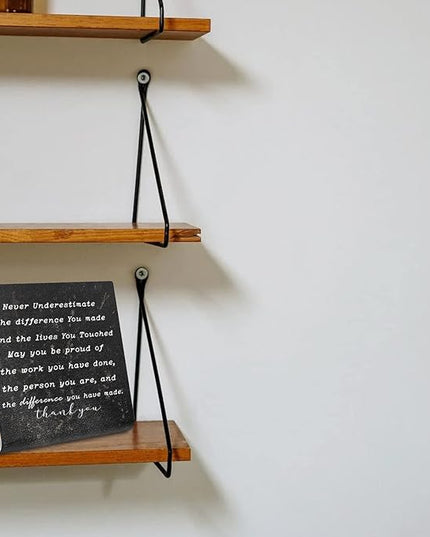 Never Underestimate
he difference You made
nd the lives You Touched
May you be proud of
the work you have done,
the person you are, and
the difference you have made.
thank you